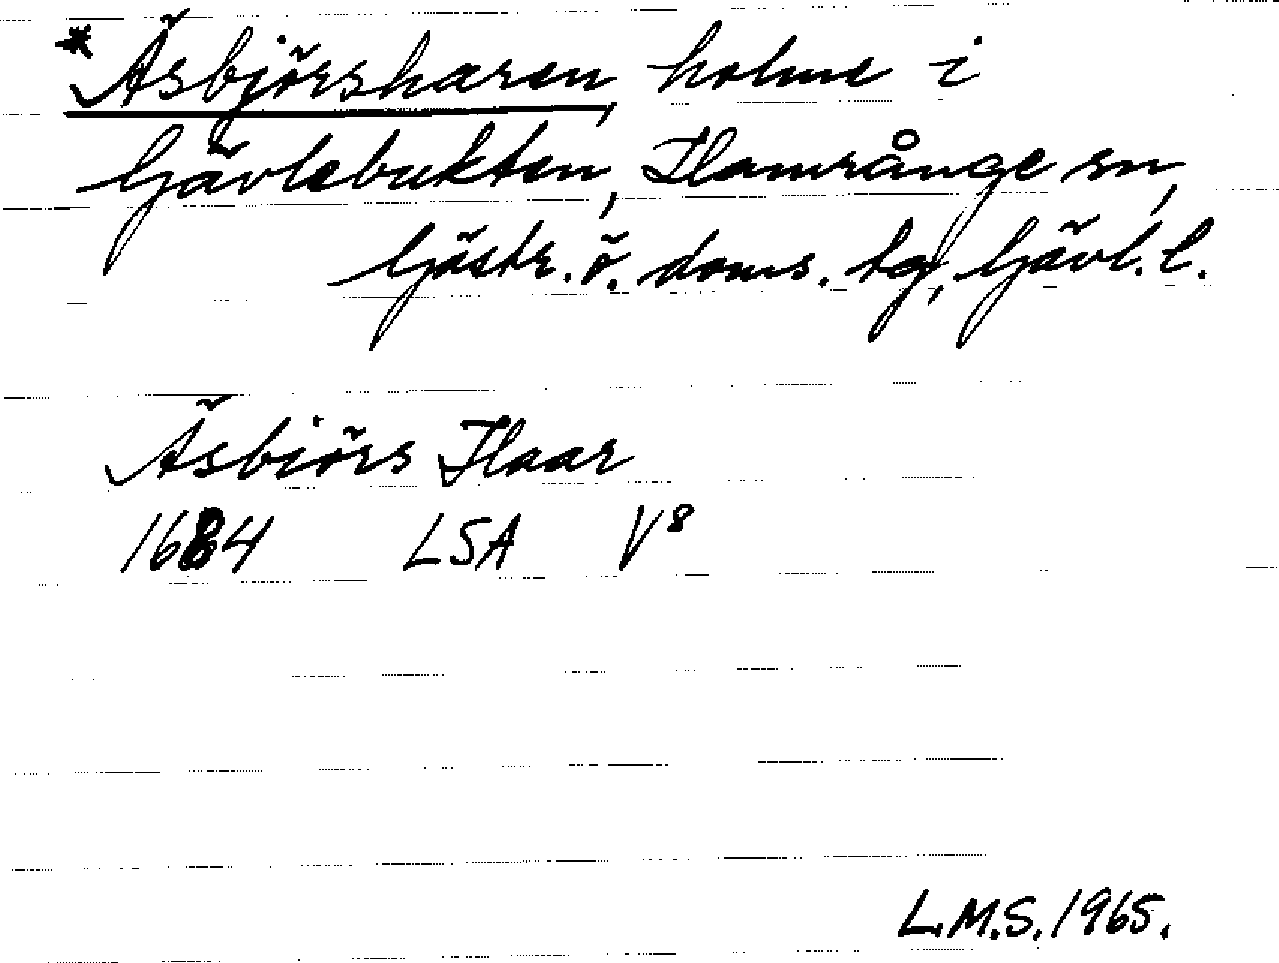 * Äsbjörsharen, holme i
Gävlebukten, Hamrånge sn,
Gästr. ö. doms. tg, Gävl. l.
Äsbiörs Haar
1684 LSA V8
L.M.S. 1965.